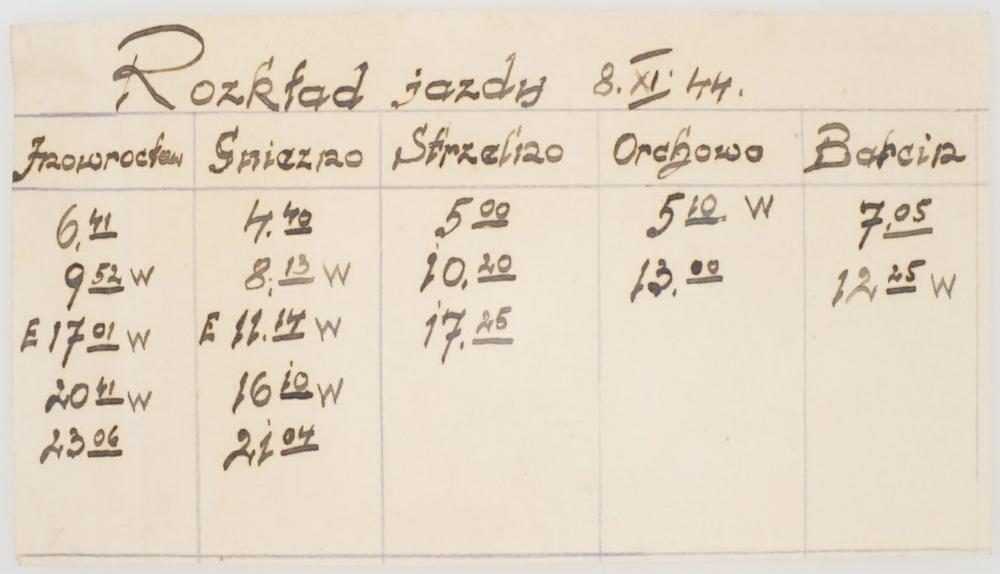 Rozkład jazdy 8.XI.44.
Inowrocław Gniezno Strzelno Orchowo Barcin
6.41 4.40 5.00 5.10 W 7.05
9.52 W 8.13 W 10.20 13.00 12.25 W
E 17.01 W E 11.14 W 17.25
20.41 W 16.10 W
23.06 21.04